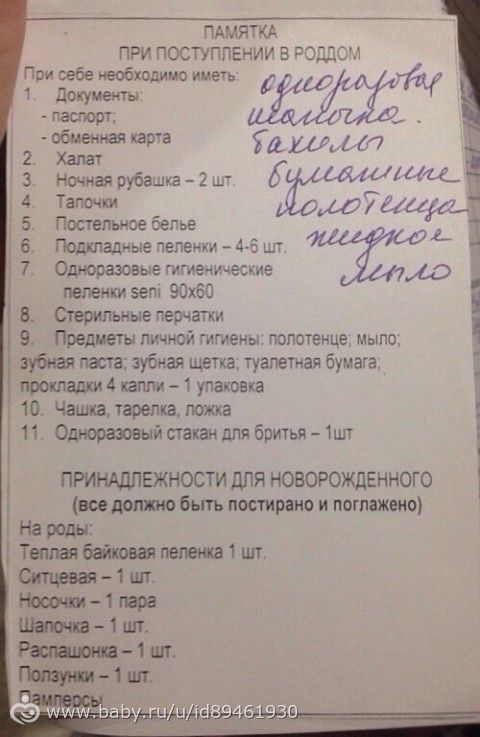 ПАМЯТКА
ПРИ ПОСТУПЛЕНИИ В РОДДОМ
При себе необходимо иметь:
1. Документы:
- паспорт;
- обменная карта
2. Халат
3. Ночная рубашка – 2 шт.
4. Тапочки
5. Постельное белье
6. Подкладные пеленки – 4-6 шт.
7. Одноразовые гигиенические
пеленки seni 90х60
8. Стерильные перчатки
9. Предметы личной гигиены: полотенце; мыло;
зубная паста; зубная щетка; туалетная бумага;
прокладки 4 капли – 1 упаковка
10. Чашка, тарелка, ложка
11. Одноразовый стакан для бритья – 1шт
одноразовая
шапочка.
бахилы
бумажные
полотенца
жидкое
мыло
ПРИНАДЛЕЖНОСТИ ДЛЯ НОВОРОЖДЕННОГО
(все должно быть постирано и поглажено)
На роды:
Теплая байковая пеленка 1 шт.
Ситцевая – 1 шт.
Носочки – 1 пара
Шапочка – 1 шт.
Распашонка – 1 шт.
Ползунки – 1 шт.
Памперсы
www.baby.ru/u/id89461930